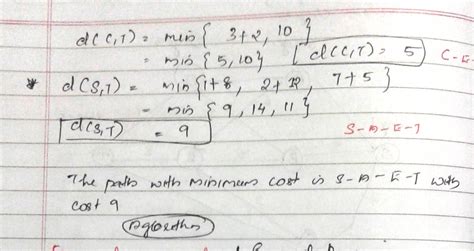 d(C,T) = min { 3+2, 10 }
= min { 5, 10 } d(C,T) = 5 C-E-
* d(S,T) = min { 1+8, 2+12, 7+5 }
= min { 9, 14, 11 }
d(S,T) = 9 S-A-E-T
The path with minimum cost is S-A-E-T with
cost 9
Algorithm